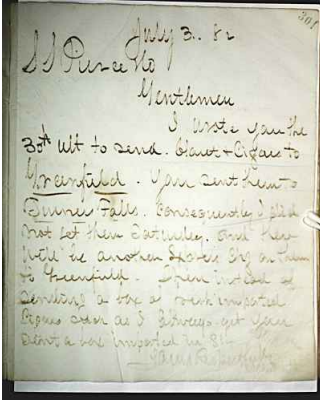 301
July 3. 82
S S Pierce &Co
Gentlemen
I wrote you the
30th ult to send. Claret & Cigars to
Greenfield. You sent them to
Turners Falls. Consequently I did
not get them Saturday. and there
will be another on them
to Greenfield. Then instead of
sending a box of imported
Cigars such as I always get you
sent a box imported in 81-
Yours Respectfully